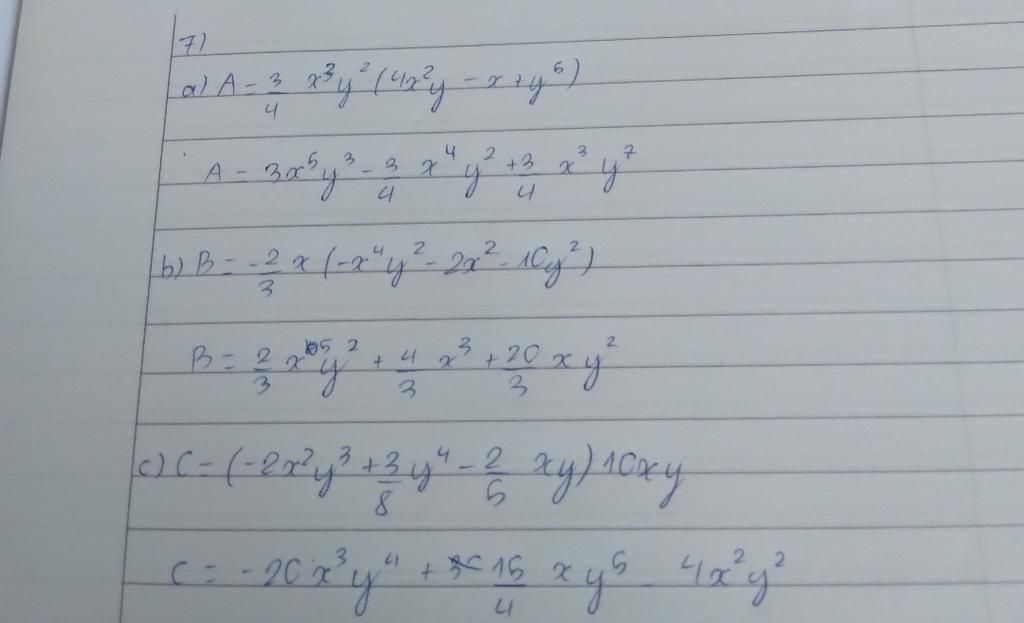 7)
a) A = 3/4 x³y² (4x²y - x + y⁵)
A = 3x⁵y³ - 3/4 x⁴y² + 3/4 x³y⁷
b) B = -2/3 x (-x⁴y² - 2x² - 10y²)
B = 2/3 x⁵y² + 4/3 x³ + 20/3 xy²
c) C = (-2x²y³ + 3/8 y⁴ - 2/5 xy) 10xy
C = -20x³y⁴ + 15/4 xy⁵ - 4x²y²